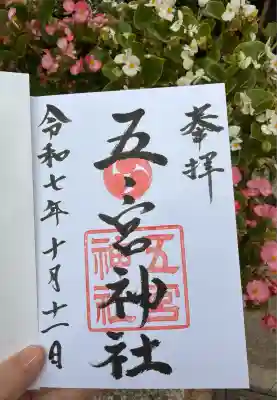 奉拝
五之宮神社
五宮
神社
令和七年十月十一日